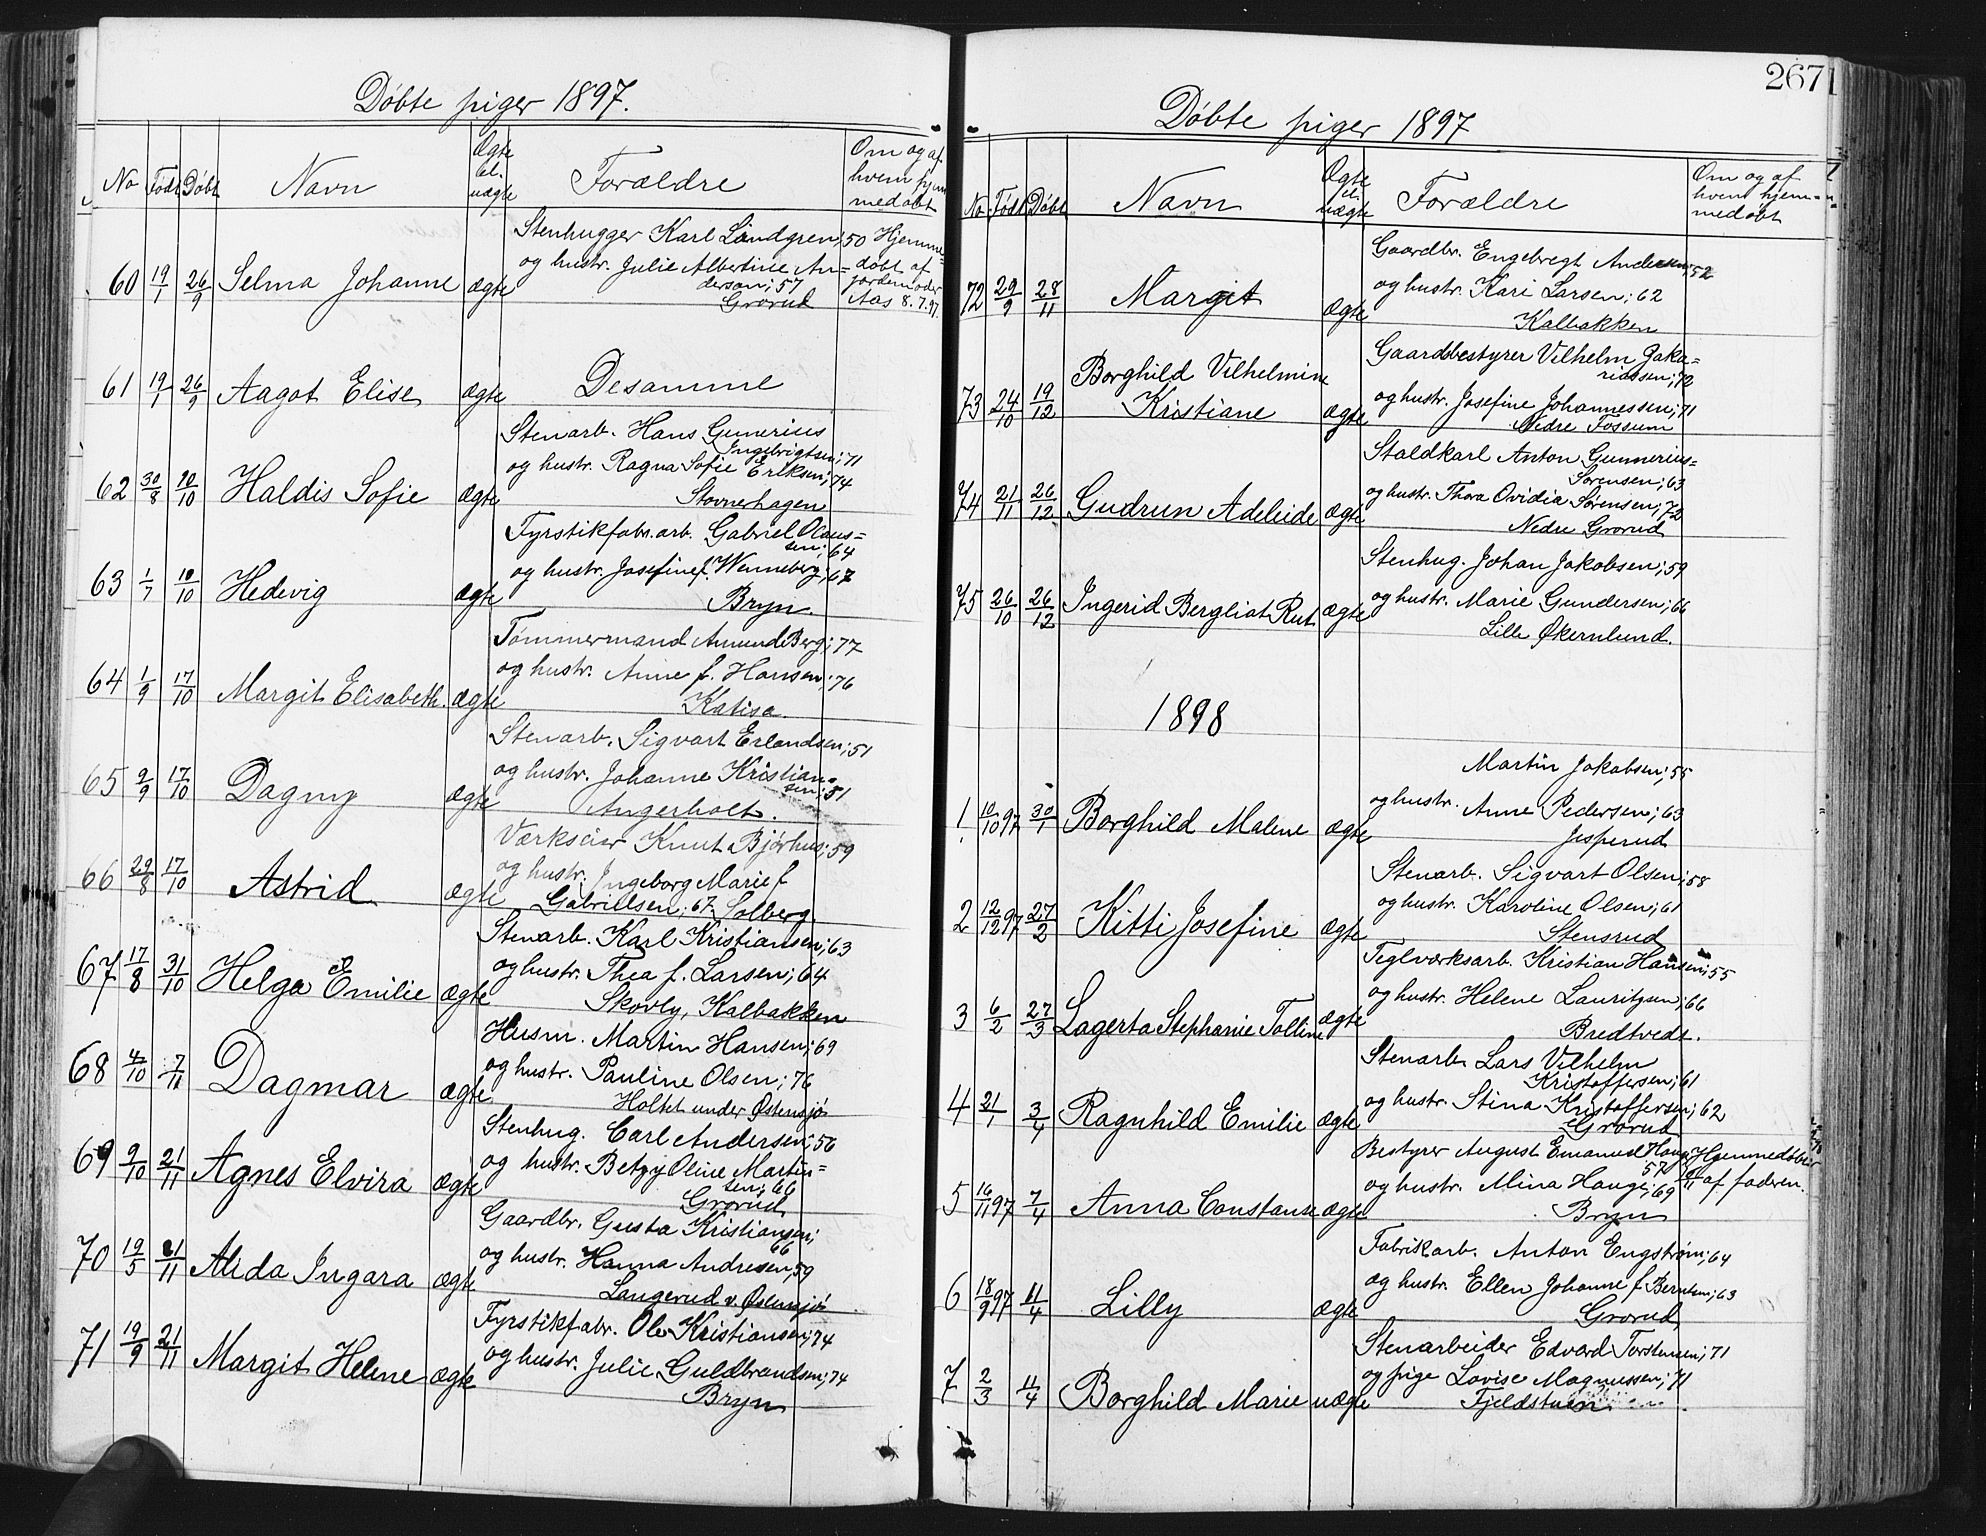 Døbte piger 1897.
No Født Døbt Navn Ægte el. uægte Forældre Om og af hvem hjem medøbt
60 19/7 26/9 Selma Johanne ægte Stenhugger Karl Lindgren; 50
og hustr. Julie Albertine An=
derson; 57
Grorud
Hjemme=
døbt af
jordemoder
Aas 8.7.97.
61 19/7 26/9 Aagot Elise ægte Desamme
62 30/8 10/10 Haldis Sofie ægte Stenarb. Hans Gunerius
Ingebrigtsen; 71
og hustr. Ragna Sofie Eriksen; 74
Stovnerhagen
63 1/7 10/10 Hedevig ægte Fyrstikfabr.arb. Gabriel Olaus=
sen; 64
og hustr. Josefine f. Wenneberg; 67
Bryn.
64 1/9 17/10 Margit Elisabeth. ægte Tømmermand Amund Berg; 77
og hustr. Anne f. Hansen; 76
Katisa.
65 2/9 17/10 Dagny ægte Stenarb. Sigvart Erlandsen; 51
og hustr. Johanne Kristian=
sen; 51
Angerholt.
66 29/8 17/10 Astrid ægte Værkseier Knut Bjørhus; 59
og hustr. Ingeborg Marie f
Gabrielsen; 67. Solberg
67 17/8 31/10 Helga Emilie ægte Stenarb. Karl Kristiansen; 63
og hustr. Thea f. Larsen; 64
Skovly, Kalbakken
68 4/10 7/11 Dagmar ægte Husm. Martin Hansen; 69
og hustr. Pauline Olsen; 76
Holtet under Østensjø
69 9/10 21/11 Agnes Elvira ægte Stenhug. Carl Andersen; 56
og hustr. Betzy Oline Martin=
sen; 66
Grorud
70 19/5 21/11 Alida Ingara ægte Gaardbr. Gusta Kristiansen;
66
og hustr. Hanna Andresen, 59
Langerud v. Østensjø
71 19/9 21/11 Margit Helene ægte Fyrstikfabr. Ole Kristiansen; 74
og hustr. Julie Guldbrandsen; 74
Bryn
267
Døbte piger 1897
No Født Døbt Navn Ægte el. uægte Forældre Om og af hvem hjem= medøbt
72 29/9 28/11 Margit ægte Gaardbr. Engebregt Andersen; 52
og hustr. Kari Larsen; 62
Kalbakken
73 24/10 19/12 Borghild Vilhelmine
Kristiane ægte Gaardsbestyrer Vilhelm Zaka=
riassen; 72
og hustr. Josefine Johannessen; 71
Nedre Fossum
74 21/11 26/12 Gudrun Adeleide ægte Staldkarl Anton Gunnerius=
Sørensen; 63
og hustr. Thora Ovidia Sørensen; 72
Nedre Grorud
75 26/10 26/12 Ingerid Bergliot Rut ægte Stenhug. Johan Jakobsen; 59
og hustr. Marie Gundersen; 66
Lille Økernlund.
1898
1 10/10 97 30/1 Borghild Malene ægte Martin Jakobsen; 55
og hustr. Anne Pedersen; 63
Jesperud
2 12/12 97 27/2 Kitti Josefine ægte Stenarb. Sigvart Olsen; 58
og hustr. Karoline Olsen; 61
Stensrud
3 6/2 27/3 Lagerta Stephanie Tolline ægte Teglværksarb. Kristian Hansen; 55
og hustr. Helene Lauritzen; 66
Bredtvedt.
4 21/1 3/4 Ragnhild Emilie ægte Stenarb Lars Vilhelm
Kristoffersen; 61
og hustr. Stina Kristoffersen; 62
Grorud
5 16/11 97 7/4 Anna Constanse ægte Bestyrer August Emanuel Hauge
57
og hustr. Mina Hauge; 69
Bryn
Hjemmedøbt
af faderen.
6 18/9 97 11/4 Lilly ægte Fabrikarb. Anton Engstrøm; 64
og hustr. Ellen Johanne f. Berntsen; 63
Grorud,
7 2/3 11/4 Borghild Marie uægte Stenarbeider Edvard Torstensen; 71
og pige Lovise Magnussen; 71
Fjeldstuen